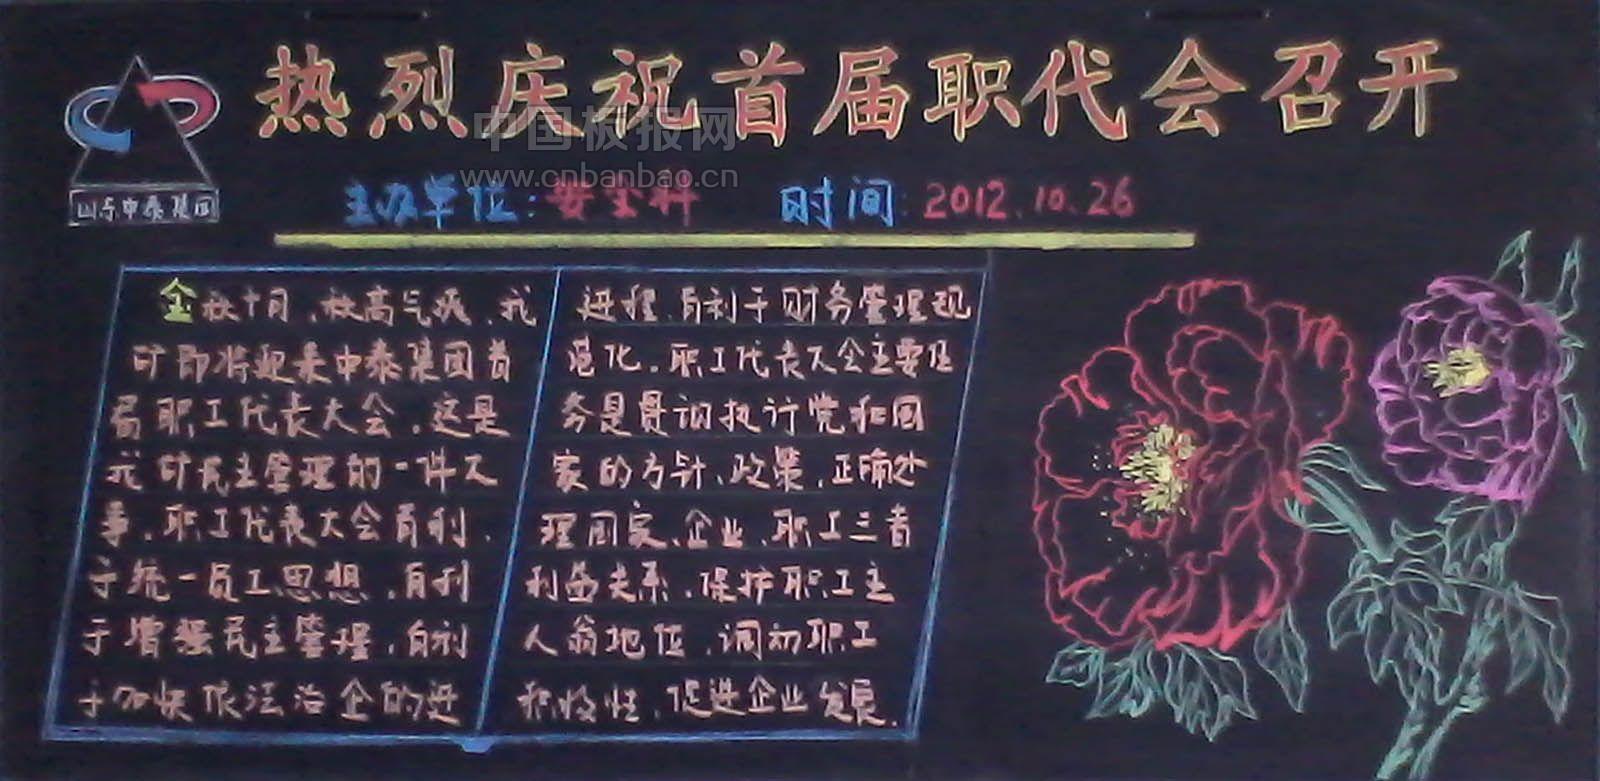 热烈庆祝首届职代会召开
中国板报网
www.cnbanbao.cn
山东中泰集团
主办单位：安全科 时间：2012.10.26
金秋十月，秋高气爽，我
矿即将迎来中泰集团首
届职工代表大会，这是
我矿民主管理的一件大
事，职工代表大会有利
于统一员工思想，有利
于增强民主管理，有利
于加快依法治企的进
进程，有利于财务管理规
范化。职工代表大会主要任
务是贯彻执行党和国
家的方针、政策，正确处
理国家、企业、职工三者
利益关系，保护职工主
人翁地位，调动职工
积极性，促进企业发展。